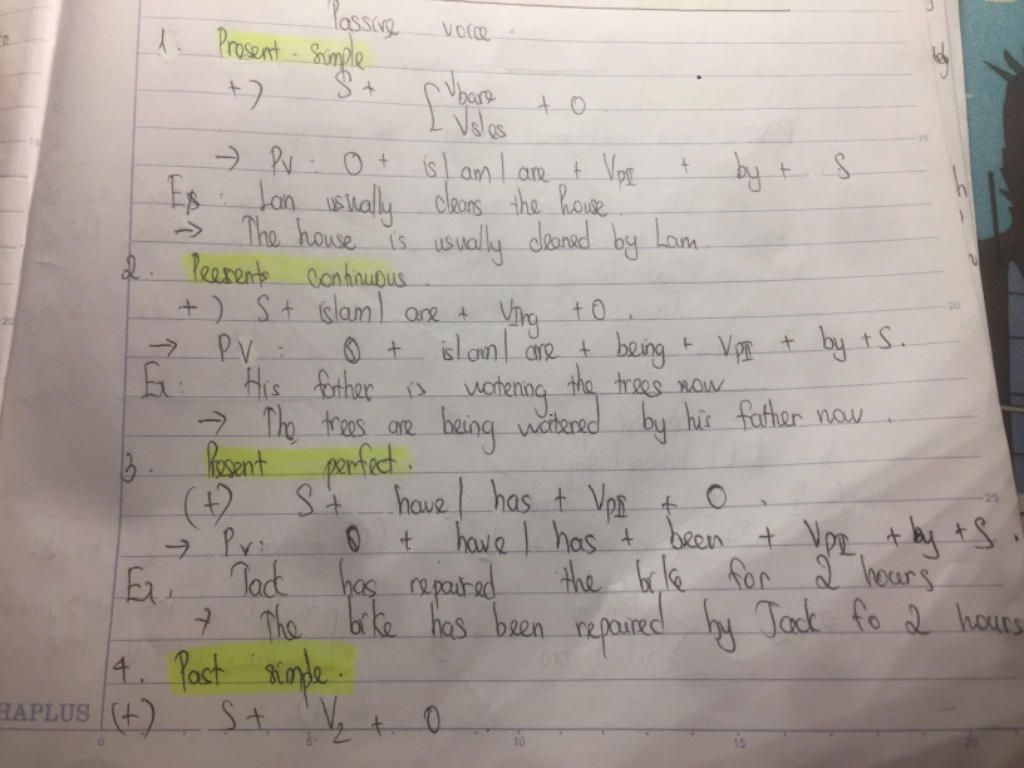 Passive voice.
1. Present simple
+) S + [ Vbare + O
Vs/es
→ PV: O + is/am/are + VpII + by + S
Ex: Lan usually cleans the house.
→ The house is usually cleaned by Lam.
2. Presents continuous
+) S + is/am/are + VIng + O.
→ PV: O + is/am/are + being + VpII + by + S.
Ex: His father is watering the trees now
→ The trees are being watered by his father now.
3. Present perfect.
(+) S + have/has + VpII + O.
→ Pv: O + have/has + been + VpII + by + S.
Ex. Jack has repaired the bike for 2 hours
→ The bike has been repaired by Jack fo 2 hours
4. Past simple.
(+) S + V2 + O
HAPLUS
0 5 10 15 20
15
20
25
20